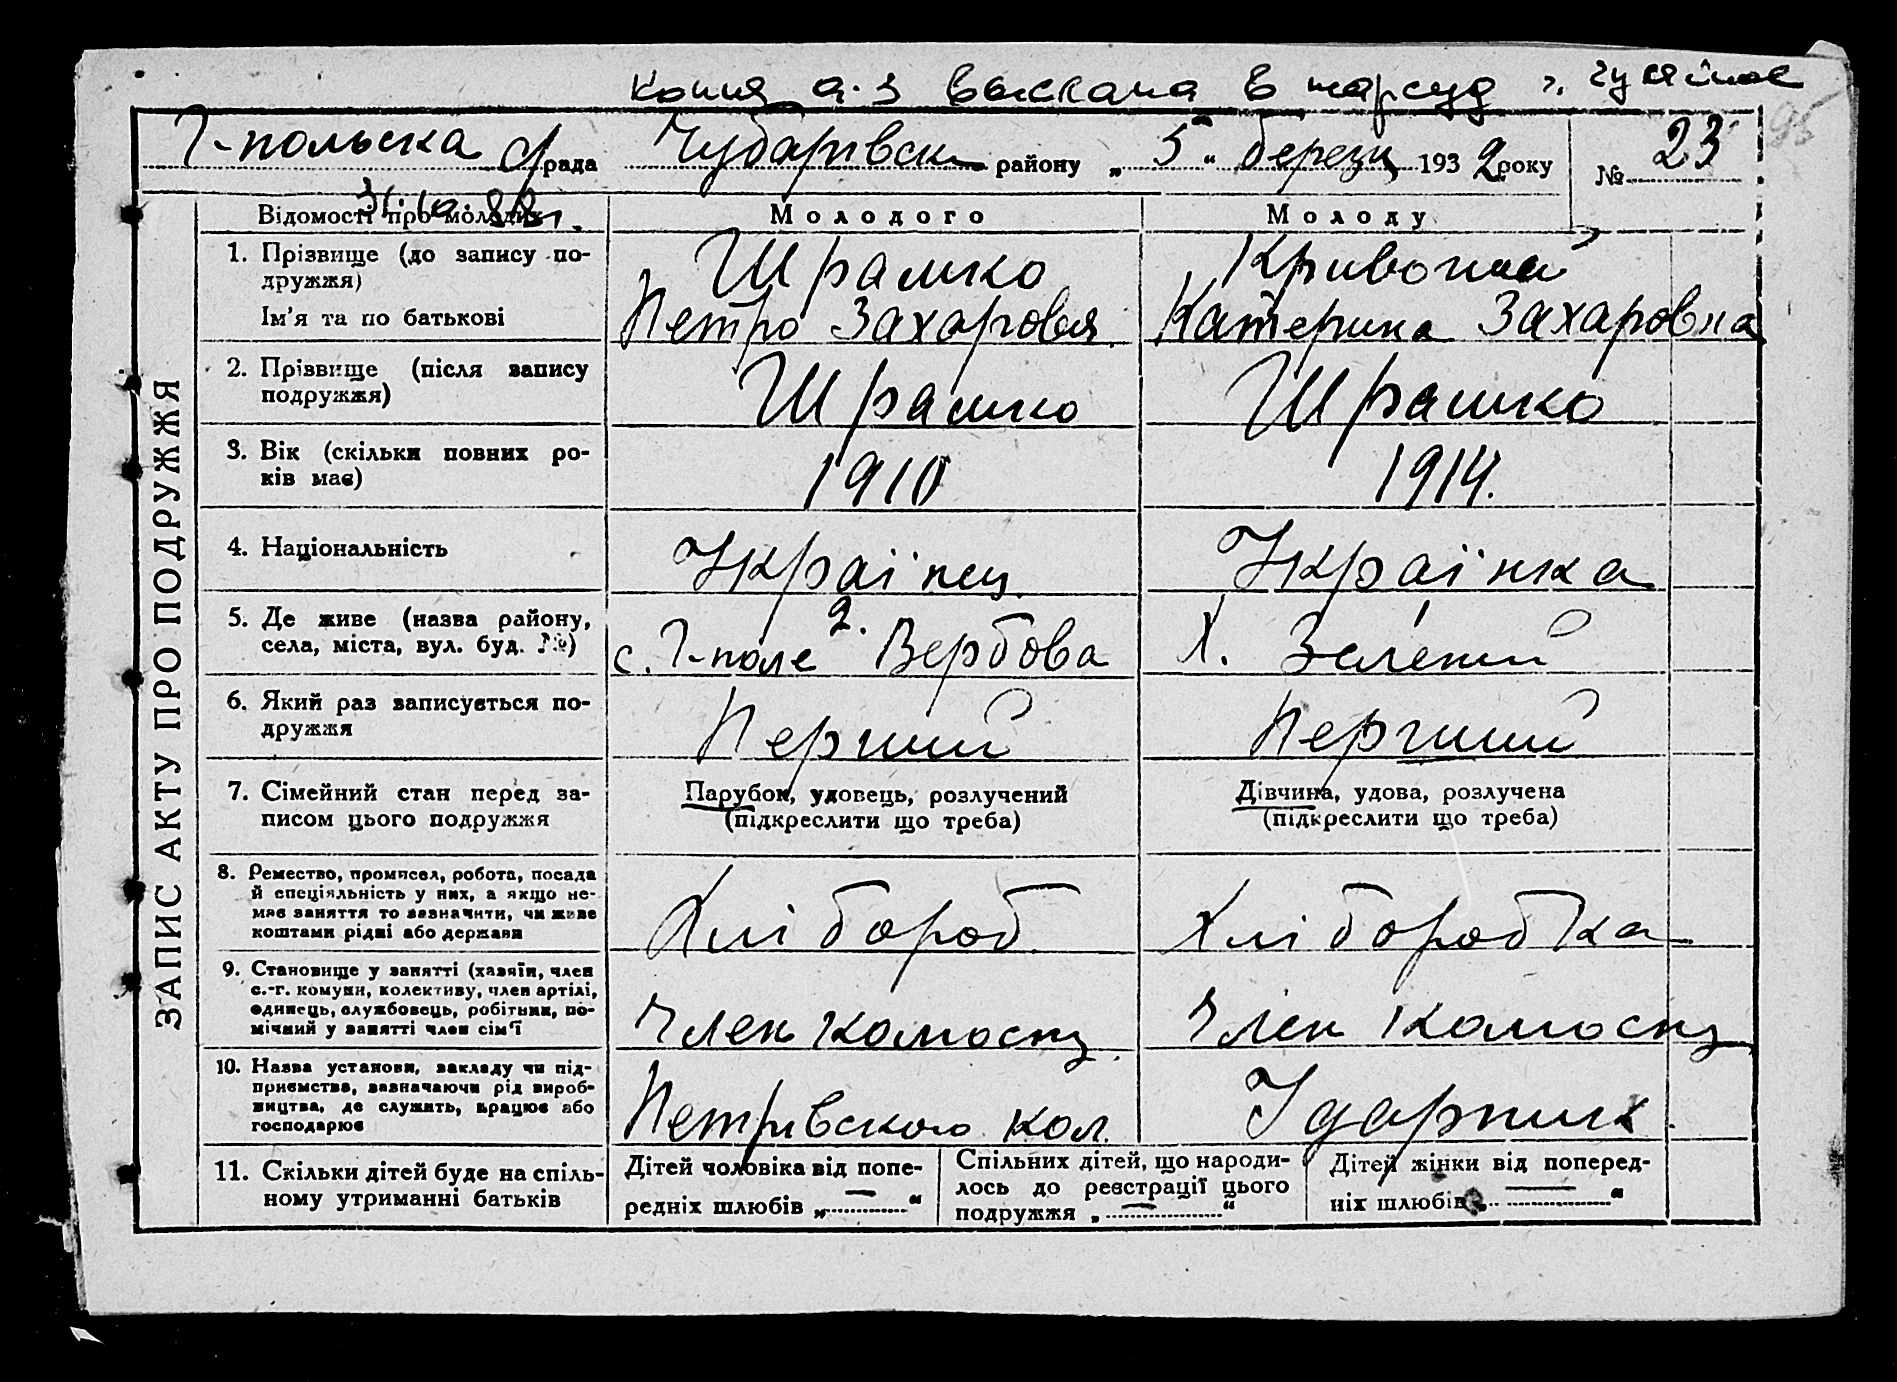 Копия а.з выслана в нарсуд г. Гуляйполе
Г-польска С/рада Чубарівськ району „5“ березн 1932 року № 23
31.10.88г.
95
ЗАПИС АКТУ ПРО ПОДРУЖЖЯ
Відомості про молодих Молодого Молоду
1. Прізвище (до запису по-
дружжя)
Шрамко Кривонос
Ім'я та по батькові
Петро Захаровия Катерина Захаровна
2. Прізвище (після запису
подружжя)
Шрамко Шрамко
3. Вік (скільки повних ро-
ків має)
1910 1914.
4. Національність
Українец Українка
5. Де живе (назва району,
села, міста, вул. буд. №)
с. Г-поле 2. Вербова Х. Зелений
6. Який раз записується по-
дружжя
Перший Перший
7. Сімейний стан перед за-
писом цього подружжя
Парубок, удовець, розлучений
(підкреслити що треба)
Дівчина, удова, розлучена
(підкреслити що треба)
8. Ремество, промисел, робота, посада
й спеціяльність у них, а якщо не-
має заняття то зазначити, чи живе
коштами рідні або держави
Хлібороб Хліборобка
9. Становище у занятті (хазяїн, член
с.-г. комуни, колективу, член артілі,
одинець, службовець, робітник, по-
мічний у занятті член сім'ї
Член комосну Член комосну
10. Назва установи, закладу чи під-
приємства, зазначаючи рід вироб-
ництва, де служить, працює або
господарює
Петрівского кол. Ударник
11. Скільки дітей буде на спіль-
ному утриманні батьків
Дітей чоловіка від попе-
редніх шлюбів „ — “
Спільних дітей, що народи-
лось до реєстрації цього
подружжя „ — “
Дітей жінки від поперед-
ніх шлюбів „ — “